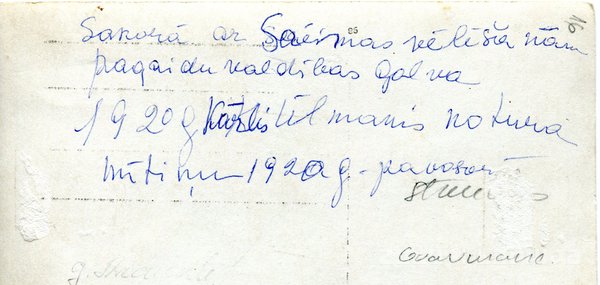 16
Sakarā ar Saeimas vēlēšanām
pagaidu valdības galva
1920 g Kārlis Ulmanis noturēja
mītiņu 1920 g. pavasarī